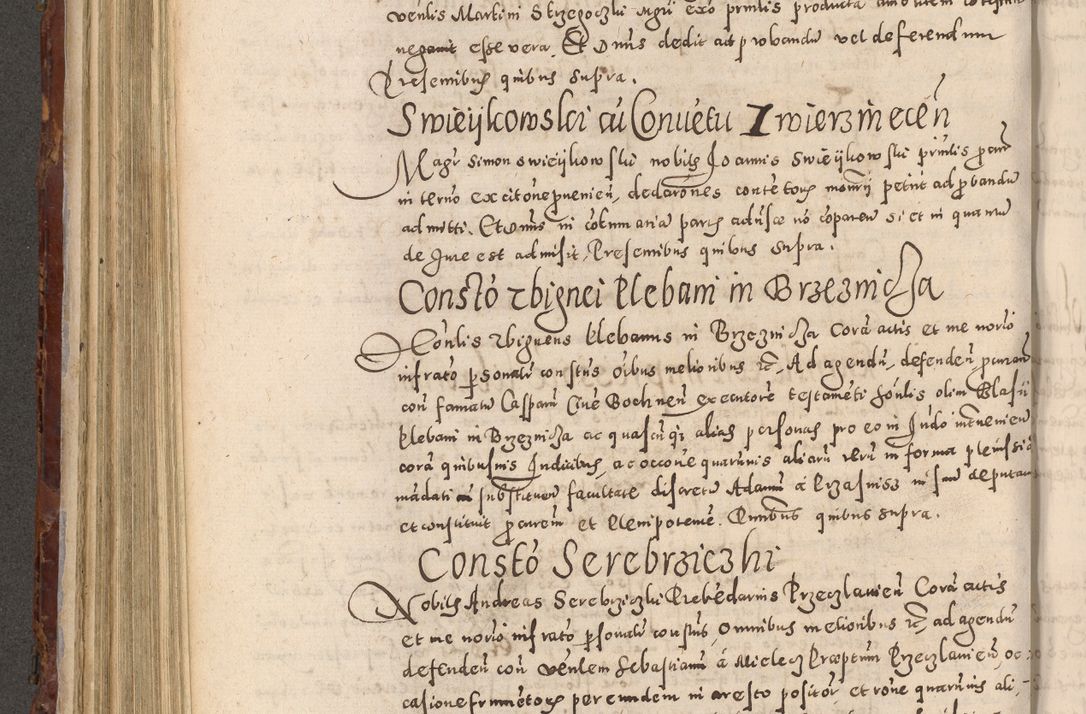 venlis Martini Strzegoczki Mgri exo prmlis producta
negavit esse vera, Et Dnus dedit ad probandu vel deferendum
Presentibus quibus supra.
Swieijkowski cu Conuetu Zwierzinecen
Magr Simon Swieijkowski nobilis Joannis Swieijkowski prinlis
in terno excitone pueniens, dedarones contetorum petut ad probandu
admitti. Et Dnus in cotumacia partis aduse no coparen si et in quantu
de Jure est admisit, Presentibus quibus supra.
Consto Zbignei Plebani in Brzeznicza
Honlis Zbigneus plebanus in Brzeznicza Cora actis et me norio
infrato psonalr constus oibus melioribus etc, Ad agendu, defenden
con famatu Casparu Ciue Bochnen executore testameti honlis olim Blasii
plebani in Brzeznicza ac quascuqz alias personas pro eo in Judo
cora quibusuis Judicibus, ac occone quarumuis aliaru reru in forma
madati substituen facultate discretu Adamu a Przasnisz
et constituit et Plenipotente. Pntibus quibus supra.
Consto Serebrziczki
Nobilis Andreas Serebrziczki Prebedarius Przeczlauien Cora actis
et me norio infrato psonalr constus, omnibus melioribus etc, ad agendu
defenden con venlem Sebastianu a Mielecz Praeptum Przeczlauien, oc
casione frumetorum per eundem in aresto positor et rone quarumuis ali